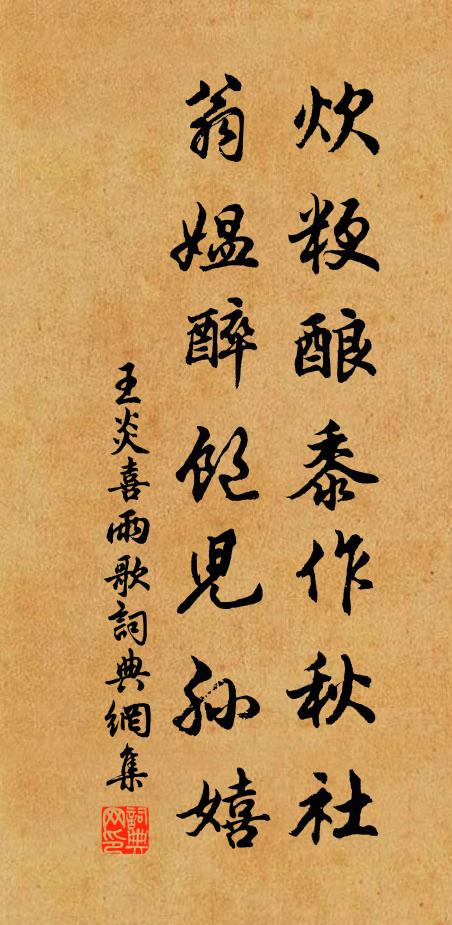 炊粳酿黍作秋社
翁媪醉饱児孙嬉
王炎喜雨歌詞典網集
詞典网印